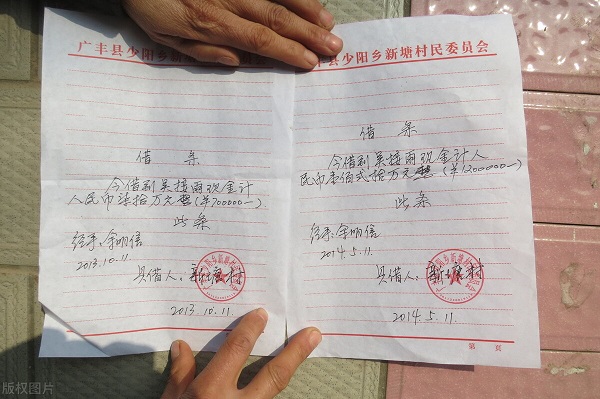 广丰县少阳乡新塘村民委员会
借条
今借到吴接雨现金计
人民币柒拾万元整(¥700000—)
此条
经手:余明信
2013.10.11.
具借人:新塘村
2013.10.11.
广丰县少阳乡新塘村民委员会
借条
今借到吴接雨现金计人
民币壹佰贰拾万元整(¥1200000—)
此条
经手:余明信
2014.5.11.
具借人:新塘村
2014.5.11.
第 页
版权图片